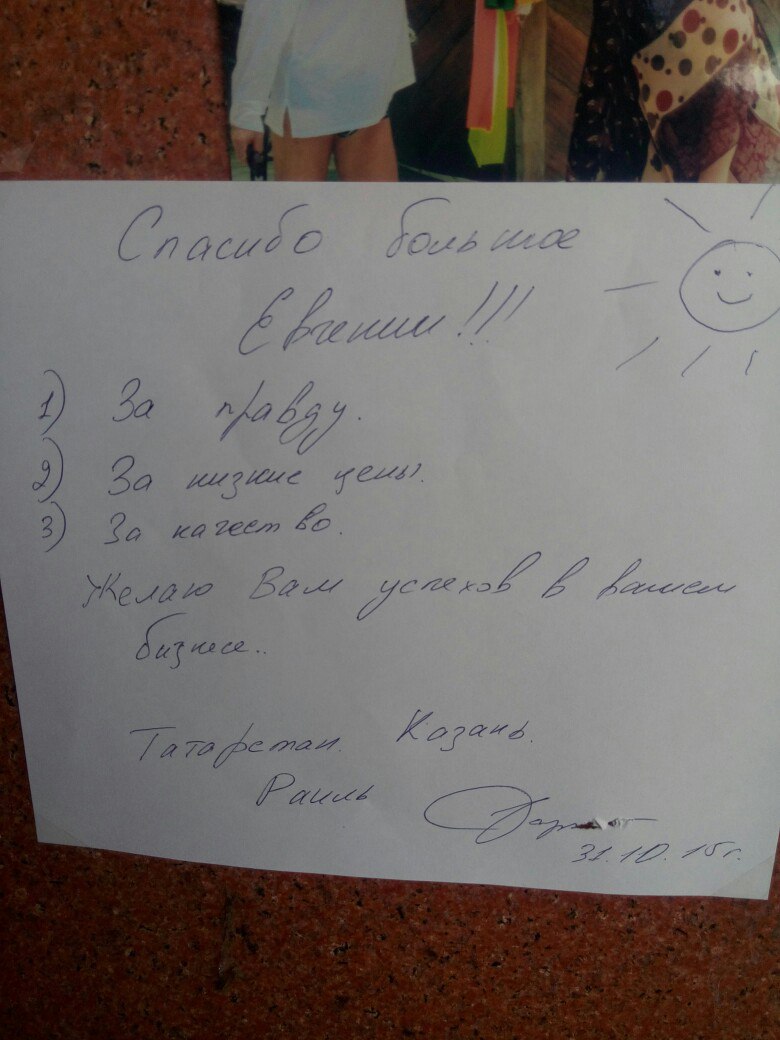 Спасибо большое
Евгении!!!
1) За правду.
2) За низкие цены.
3) За качество.
Желаю Вам успехов в вашем
бизнесе..
Татарстан. Казань.
Раиль
31.10.15г.